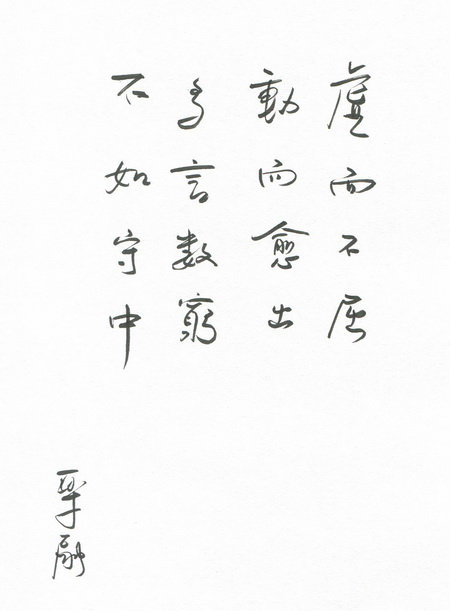 虛而不屈
動而愈出
多言数窮
不如守中